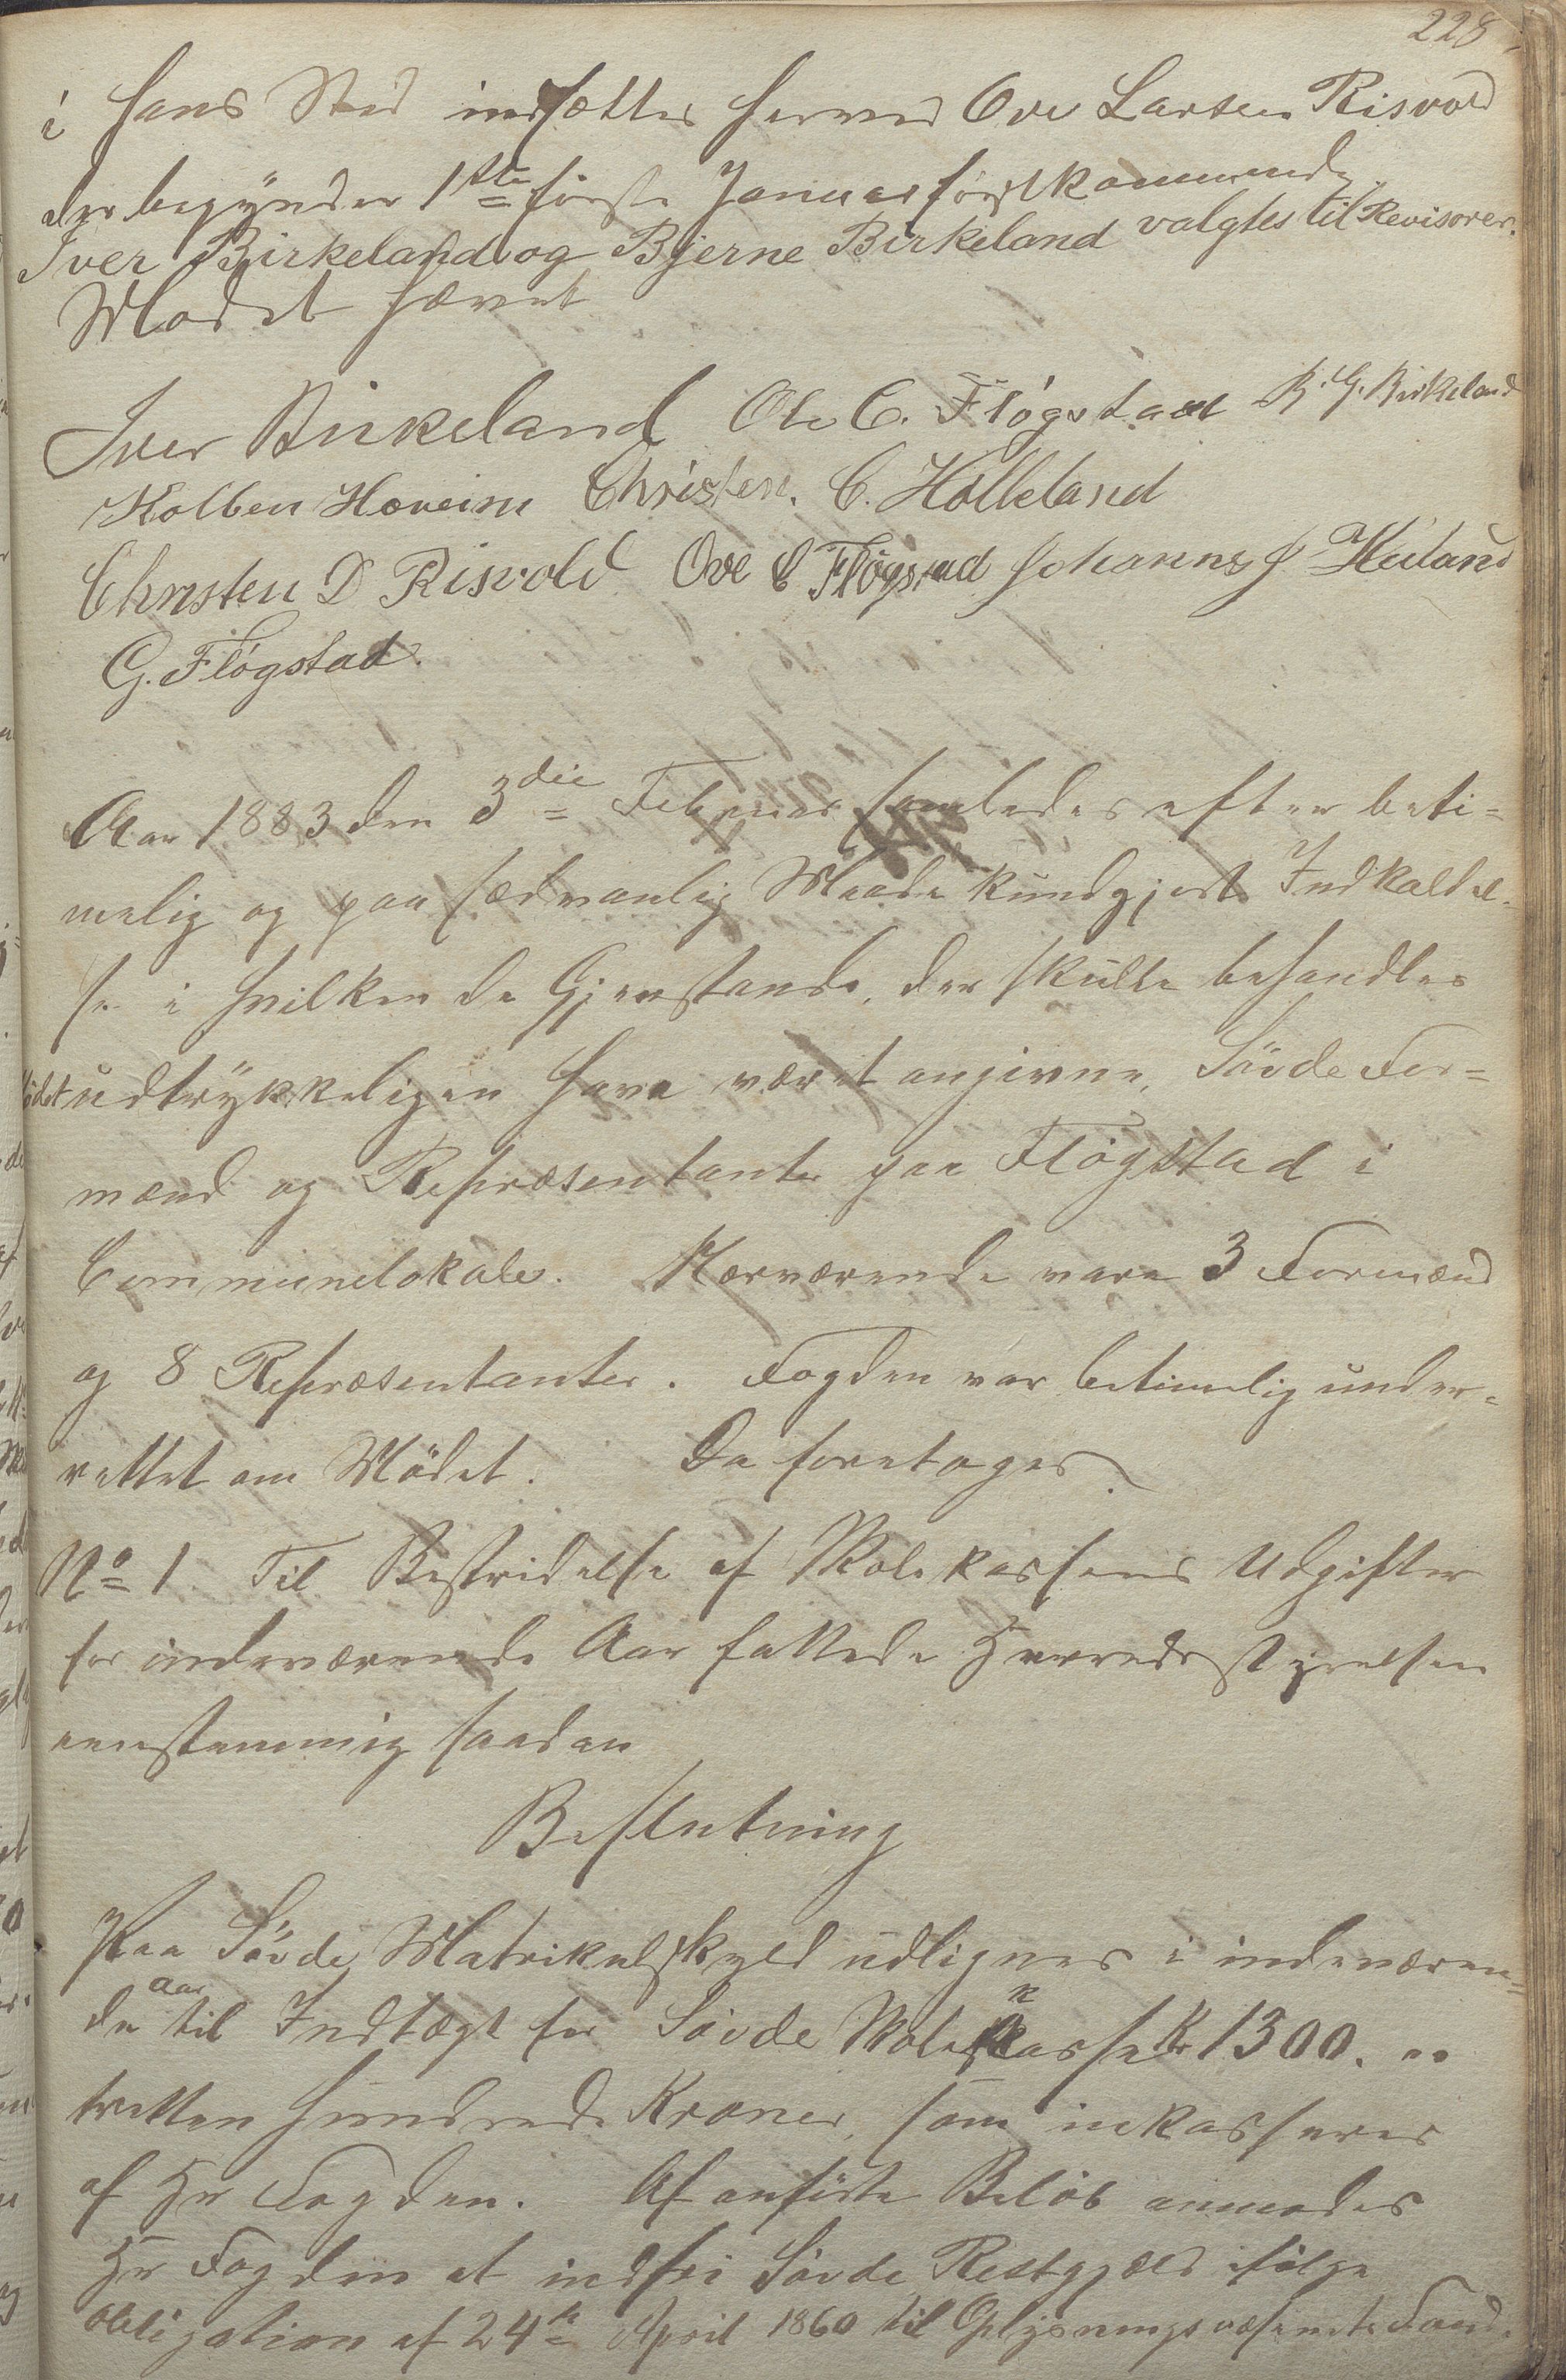 228
i hans Sted indsættes herved Ove Larsen Risvold
der begynder 1ste første Januar førstkommende.
Iver Birkeland og Bjerne Birkeland valgtes til Revisorer.
Mødet hævet
Iver Birkeland Ole C. Fløgstad B. G. Birkeland
Kolben Hoveim Christen. C. Halleland
Christen D Risvold Ove C Fløgstad Johannes J Heiland
G. Fløgstad.
Aar 1883 den 3die Februar samledes efter beti=
melig og paa sædvanlig Maade kundgjort Indkaldel-
se i hvilken de Gjenstande, der skulle behandles
udtrykkeligen have været angivne, Søvde For=
mænd og Repræsentanter paa Fløgstad i
Communelokale. Nærværende vare 3 Formænd
og 8 Repræsentanter. Fogden var betimelig under-
rettet om Mødet. Da foretoges
No 1. Til Bestridelse af Skolekassens Udgifter
for indeværende Aar fattede Herredsstyrelsen
eenstemmig saadan
Beslutning
Paa Søvde Matrikulskyld udlignes i indeværen=
de Aar til Indtægt for Søvde Skolekasse Kr 1300. "
tretten hundrede Kroner, som inkasseres
af Hr Fogden. Af anførte Beløb anmodes
Hr Fogden at indfri Søvde Restgjæld ifølge
Obligation af 24de April 1860 til Oplysningsvæsenets Fond.